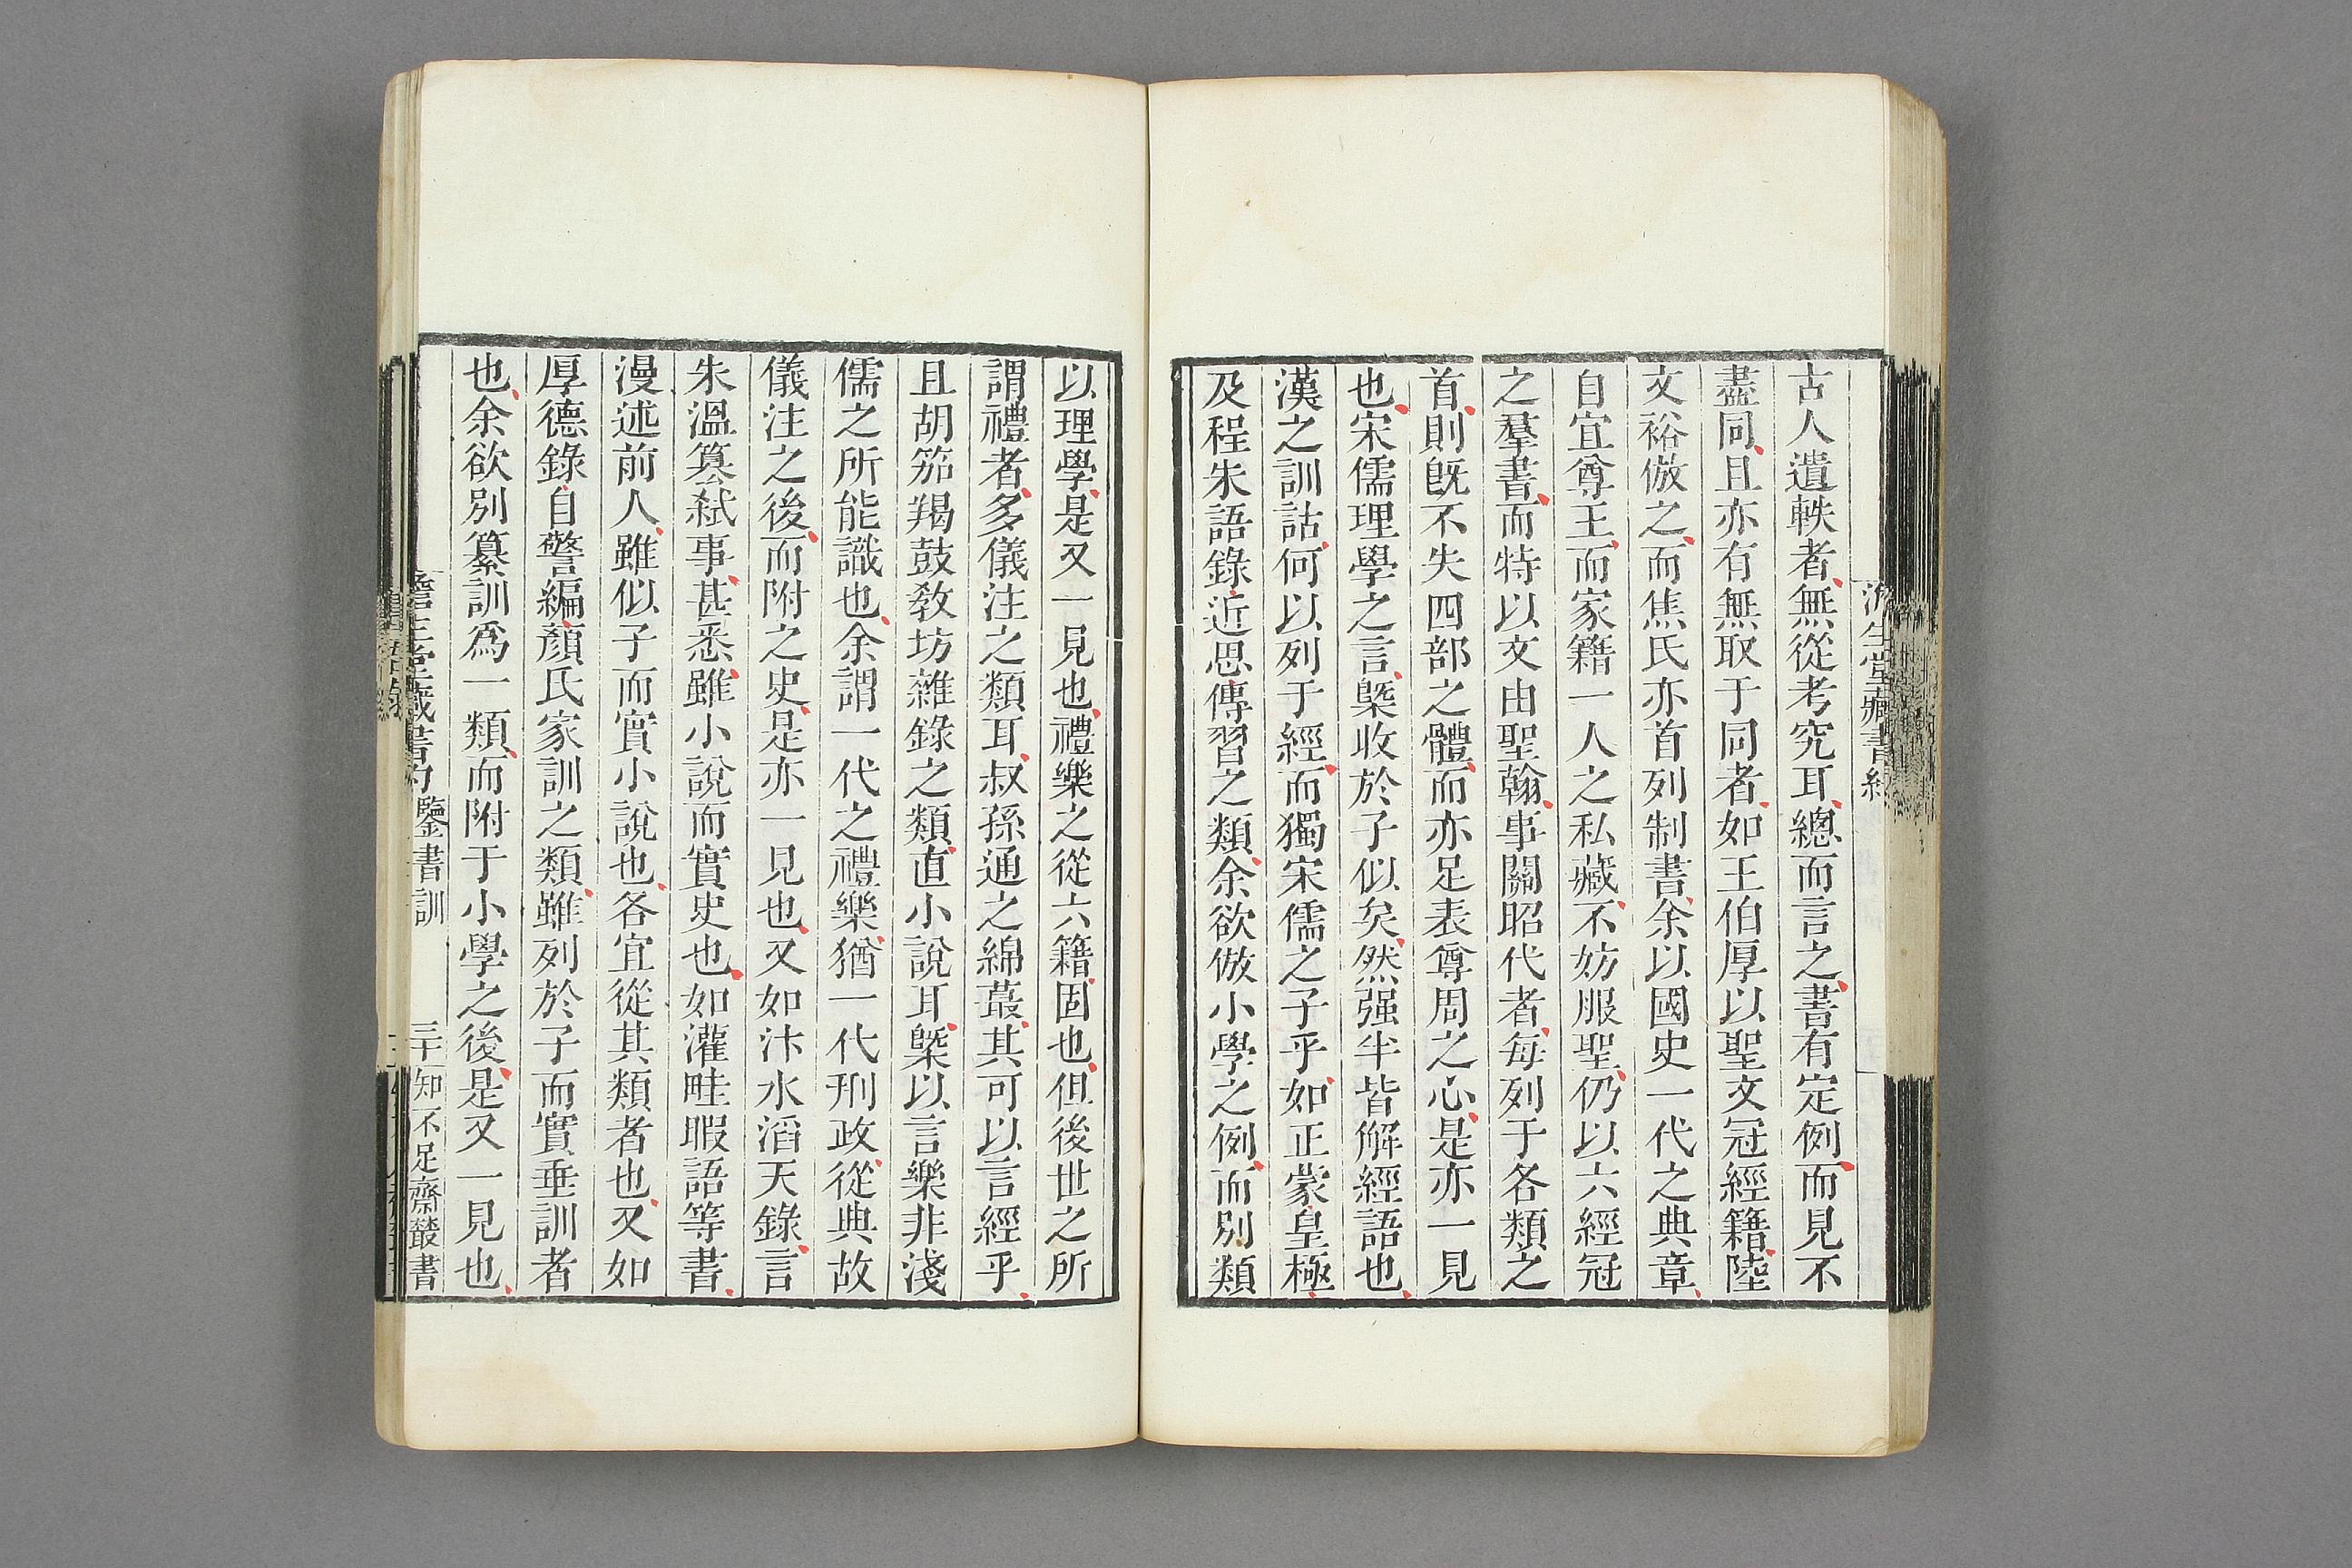 古人遺軼者無從考究耳總而言之書有定例而見不
盡同且亦有無取于同者如王伯厚以聖文冠經籍陸
文裕倣之而焦氏亦首列制書余以國史一代之典章
自宜尊王而家籍一人之私藏不妨服聖仍以六經冠
之羣書而特以文由聖翰事關昭代者每列于各類之
首則旣不失四部之體而亦足表尊周之心是亦一見
也宋儒理學之言槩收於子似矣然强半皆解經語也
漢之訓詁何以列于經而獨宋儒之子乎如正蒙皇極
及程朱語錄近思傳習之類余欲倣小學之例而別類
以理學是又一見也禮樂之從六籍固也但後世之所
謂禮者多儀注之類耳叔孫通之綿蕞其可以言經乎
且胡笳羯鼓敎坊雜錄之類直小說耳槩以言樂非淺
儒之所能識也余謂一代之禮樂猶一代刑政從典故
儀注之後而附之史是亦一見也又如汴水滔天錄言
朱溫篡弑事甚悉雖小說而實史也如灌畦暇語等書
漫述前人雖似子而實小說也各宜從其類者也又如
厚德錄自警編顏氏家訓之類雖列於子而實垂訓者
也余欲別纂訓爲一類而附于小學之後是又一見也
澹生堂藏書約 鑒書訓 三十 知不足齋叢書